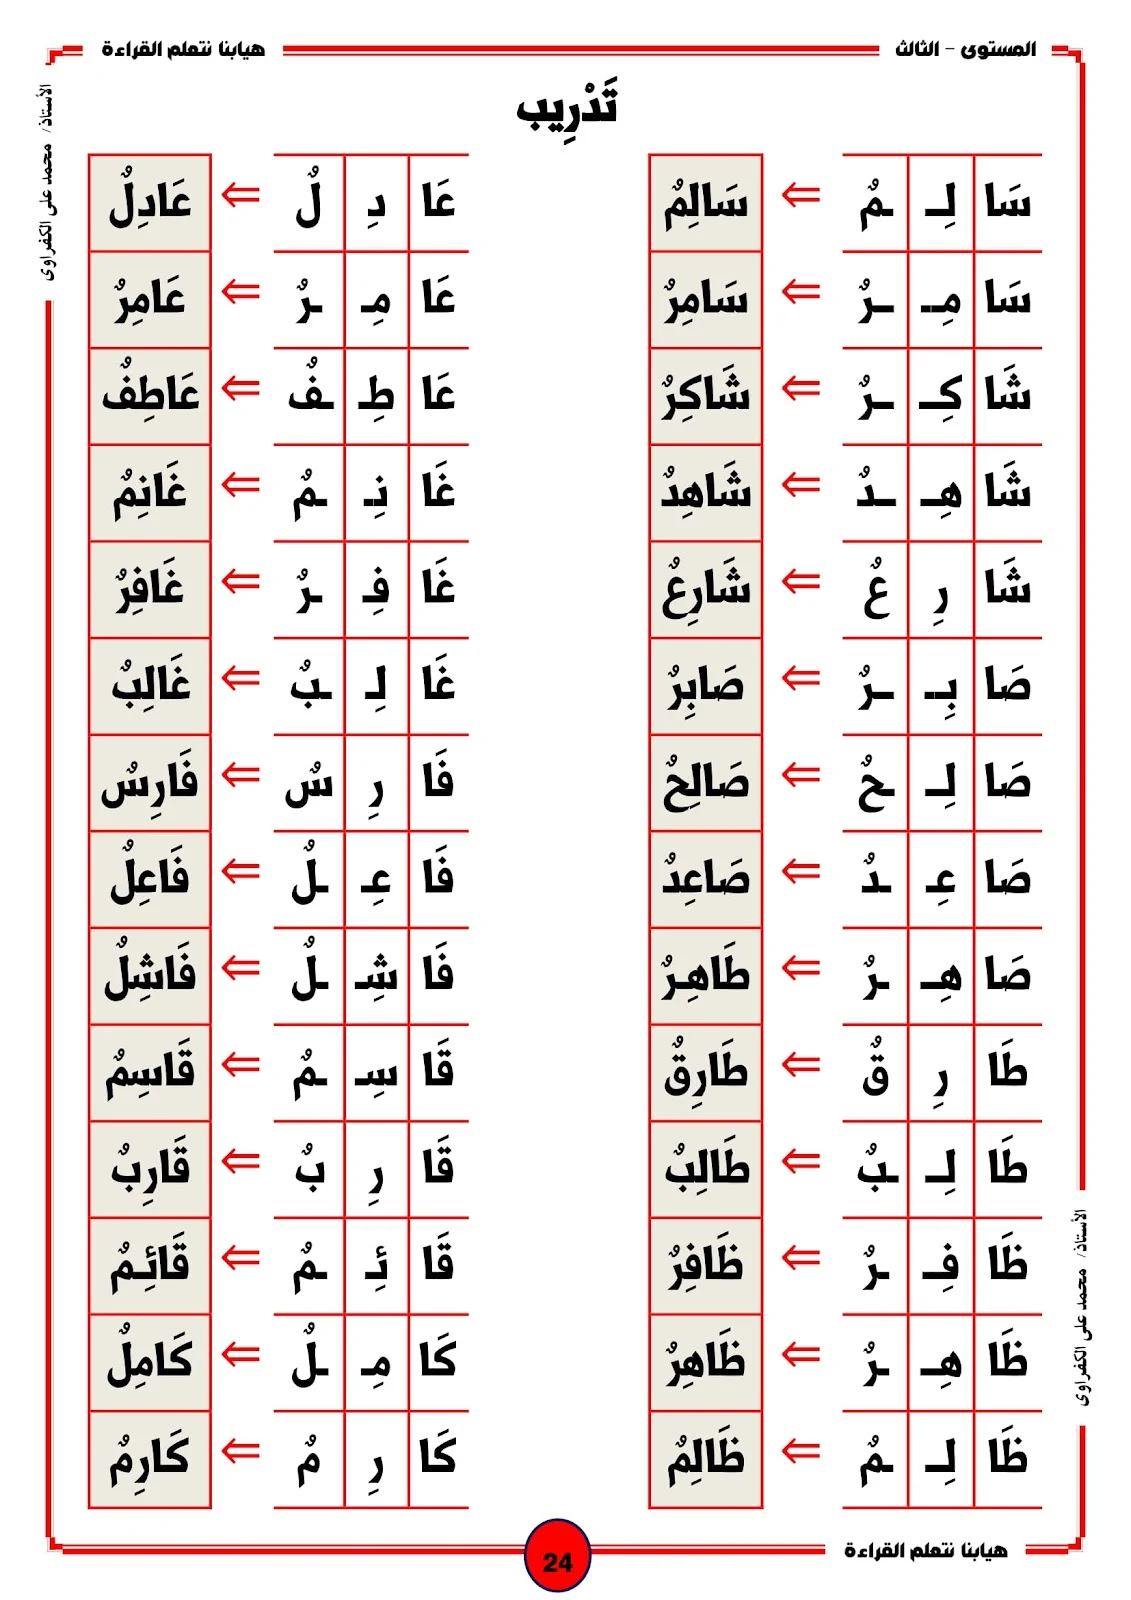 المستوى - الثالث
هيابنا نتعلم القراءة
تَدْرِيب
سَا لِـ ـمٌ ⇐ سَالِمٌ
سَا مِـ ـرٌ ⇐ سَامِرٌ
شَا كِـ ـرٌ ⇐ شَاكِرٌ
شَا هِـ ـدٌ ⇐ شَاهِدٌ
شَا رِ عٌ ⇐ شَارِعٌ
صَا بِـ ـرٌ ⇐ صَابِرٌ
صَا لِـ ـحٌ ⇐ صَالِحٌ
صَا عِـ ـدٌ ⇐ صَاعِدٌ
صَا هِـ ـرٌ ⇐ طَاهِرٌ
طَا رِ قٌ ⇐ طَارِقٌ
طَا لِـ ـبٌ ⇐ طَالِبٌ
ظَا فِـ ـرٌ ⇐ ظَافِرٌ
ظَا هِـ ـرٌ ⇐ ظَاهِرٌ
ظَا لِـ ـمٌ ⇐ ظَالِمٌ
عَا دِ لٌ ⇐ عَادِلٌ
عَا مِـ ـرٌ ⇐ عَامِرٌ
عَا طِـ ـفٌ ⇐ عَاطِفٌ
غَا نِـ ـمٌ ⇐ غَانِمٌ
غَا فِـ ـرٌ ⇐ غَافِرٌ
غَا لِـ ـبٌ ⇐ غَالِبٌ
فَا رِ سٌ ⇐ فَارِسٌ
فَا عِـ ـلٌ ⇐ فَاعِلٌ
فَا شِـ ـلٌ ⇐ فَاشِلٌ
قَا سِـ ـمٌ ⇐ قَاسِمٌ
قَا رِ بٌ ⇐ قَارِبٌ
قَا ئِـ ـمٌ ⇐ قَائِمٌ
كَا مِـ ـلٌ ⇐ كَامِلٌ
كَا رِ مٌ ⇐ كَارِمٌ
الأستاذ/ محمد على الكفراوى
الأستاذ/ محمد على الكفراوى
هيابنا نتعلم القراءة
24